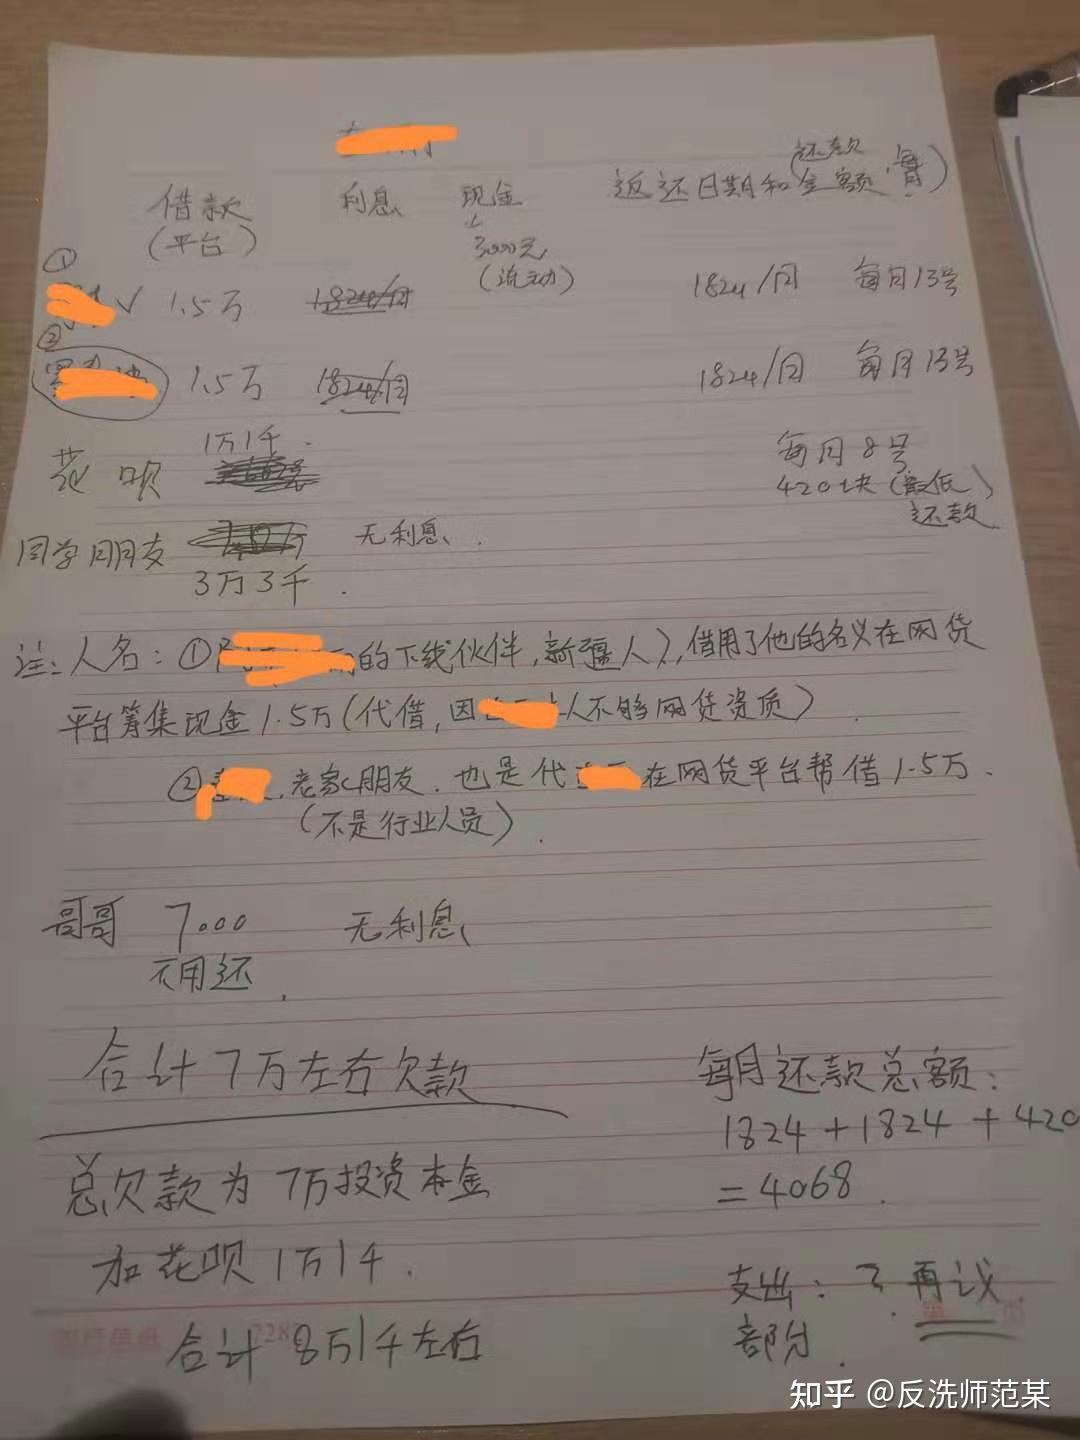 (还款
借款 利息 现金 返还日期和金额,每月)
(平台) 3000元
① (流动)
√ 1.5万 1824/月 1824/月 每月13号
②
1.5万 1824/月 1824/月 每月13号
1万1千. 每月8号
花呗 420块(最低)
还款
同学朋友 无利息.
3万3千.
注:人名:① 的下线伙伴,新疆人),借用了他的名义在网贷
平台筹集现金1.5万(代借,因 人不够网贷资质).
② 老家朋友.也是代 在网贷平台帮借1.5万.
(不是行业人员).
哥哥 7000 无利息
不用还.
合计7万左右欠款 每月还款总额:
1824+1824+420
总欠款为7万投资本金 =4068.
加花呗1万1千. 支出: ?再议
部分.
合计8万1千左右
知乎 @反洗师范某